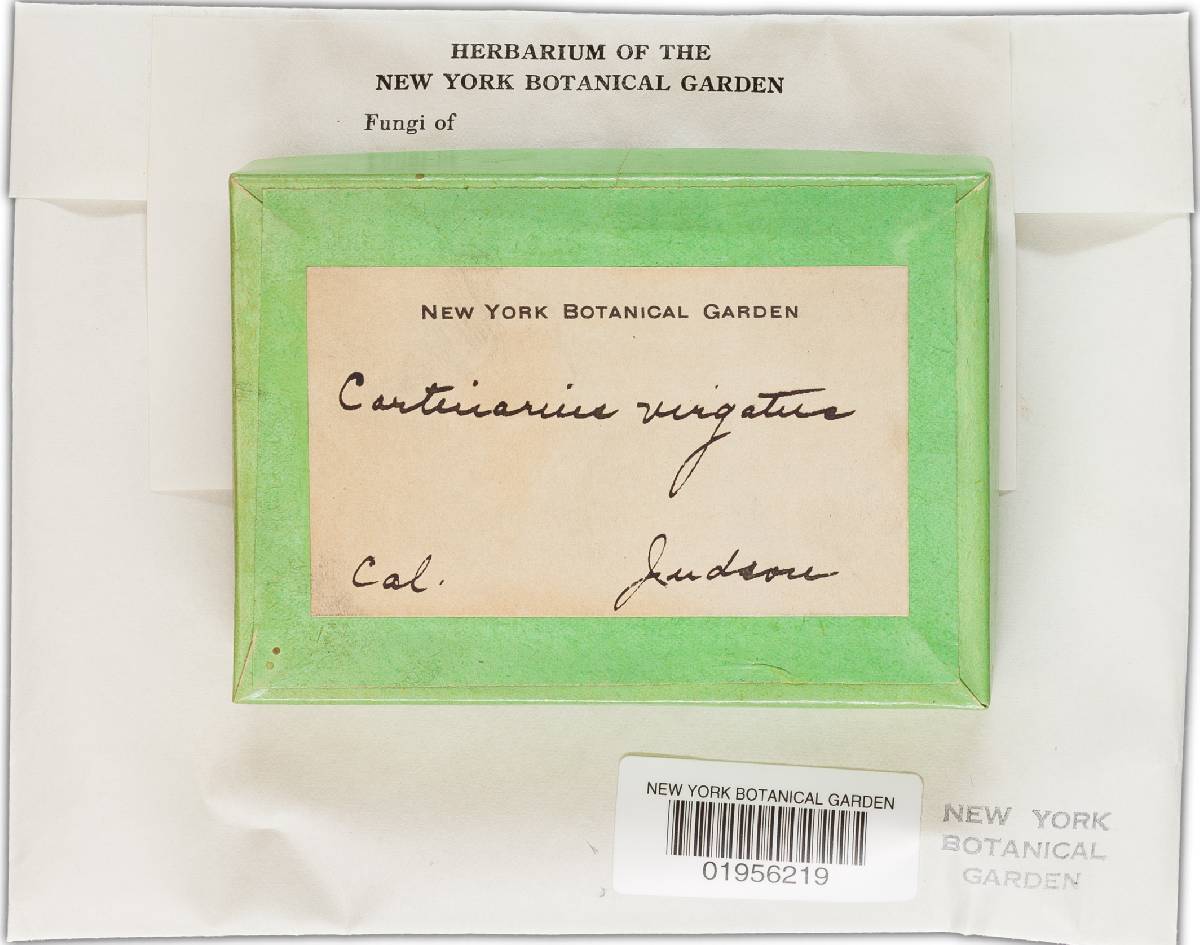 HERBARIUM OF THE
NEW YORK BOTANICAL GARDEN
Fungi of
NEW YORK BOTANICAL GARDEN
Cortinarius virgatus
Cal. Judson
NEW YORK BOTANICAL GARDEN
01956219
NEW YORK
BOTANICAL
GARDEN